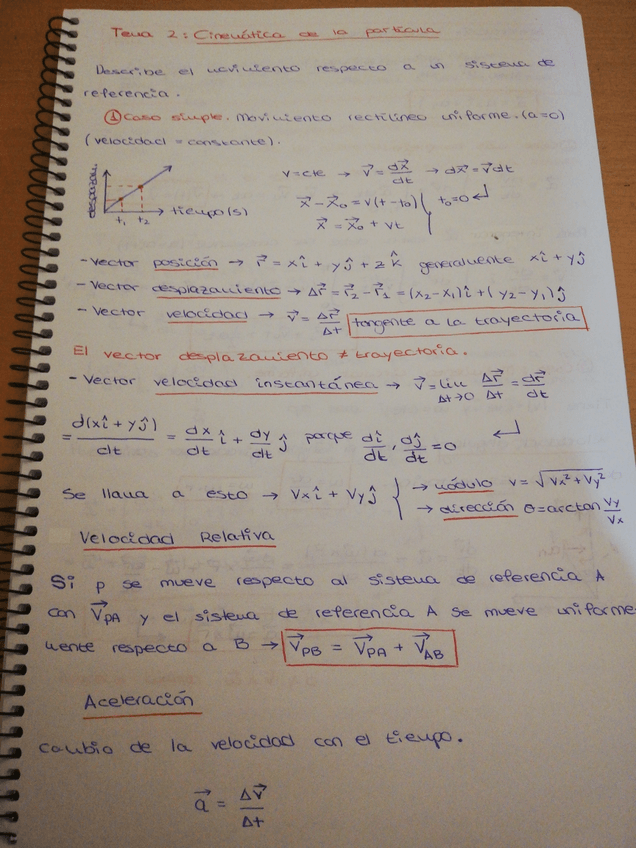 Tema 2: Cinemática de la partícula
Describe el movimiento respecto a un sistema de
referencia.
① Caso simple. Movimiento rectilíneo uniforme. (a=0)
(velocidad = constante).
desplazam.
t₁ t₂ tiempo (s)
v=cte → v⃗ = dx⃗/dt → dx⃗ = v⃗dt
x⃗ - x⃗₀ = v(t-t₀) t₀=0 ↲
x⃗ = x⃗₀ + vt
- Vector posición → r⃗ = xî + yĵ + zk̂ generalmente xî + yĵ
- Vector desplazamiento → Δr⃗ = r⃗₂ - r⃗₁ = (x₂-x₁)î + (y₂-y₁)ĵ
- Vector velocidad → v⃗ = Δr⃗/Δt tangente a la trayectoria
El vector desplazamiento ≠ trayectoria.
- Vector velocidad instantánea → v⃗ = Lim Δt→0 Δr⃗/Δt = dr⃗/dt
= d(xî + yĵ)/dt = dx/dt î + dy/dt ĵ porque dî/dt, dĵ/dt = 0 ↲
Se llama a esto → Vxî + Vyĵ { → módulo v = √(Vx² + Vy²)
→ dirección θ = arctan Vy/Vx
Velocidad Relativa
Si p se mueve respecto al sistema de referencia A
con V⃗PA y el sistema de referencia A se mueve uniforme-
mente respecto a B → V⃗PB = V⃗PA + V⃗AB
Aceleración
Cambio de la velocidad con el tiempo.
a⃗ = ΔV⃗/Δt